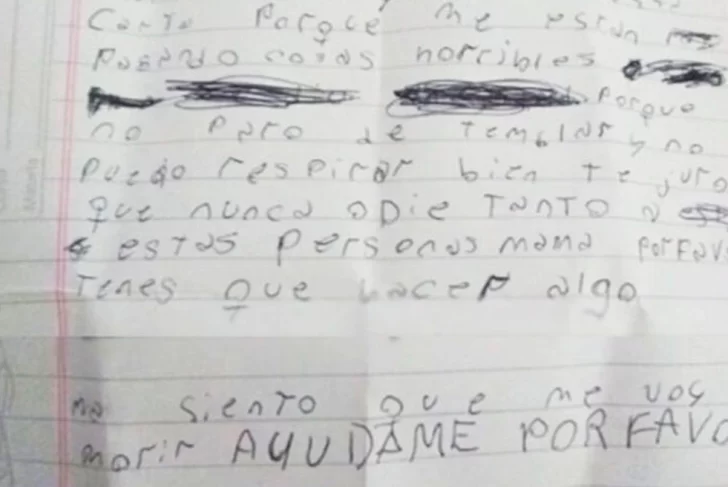 Carta Porque me estan
Pasando cosas horribles
Porque
no Paro de temblar y no
Puedo respirar bien te juro
que nunca odie TANTO a
estas personas mama PORFAV
Tenes que hacer algo
me siento que me voy
morir AYUDAME POR FAVO